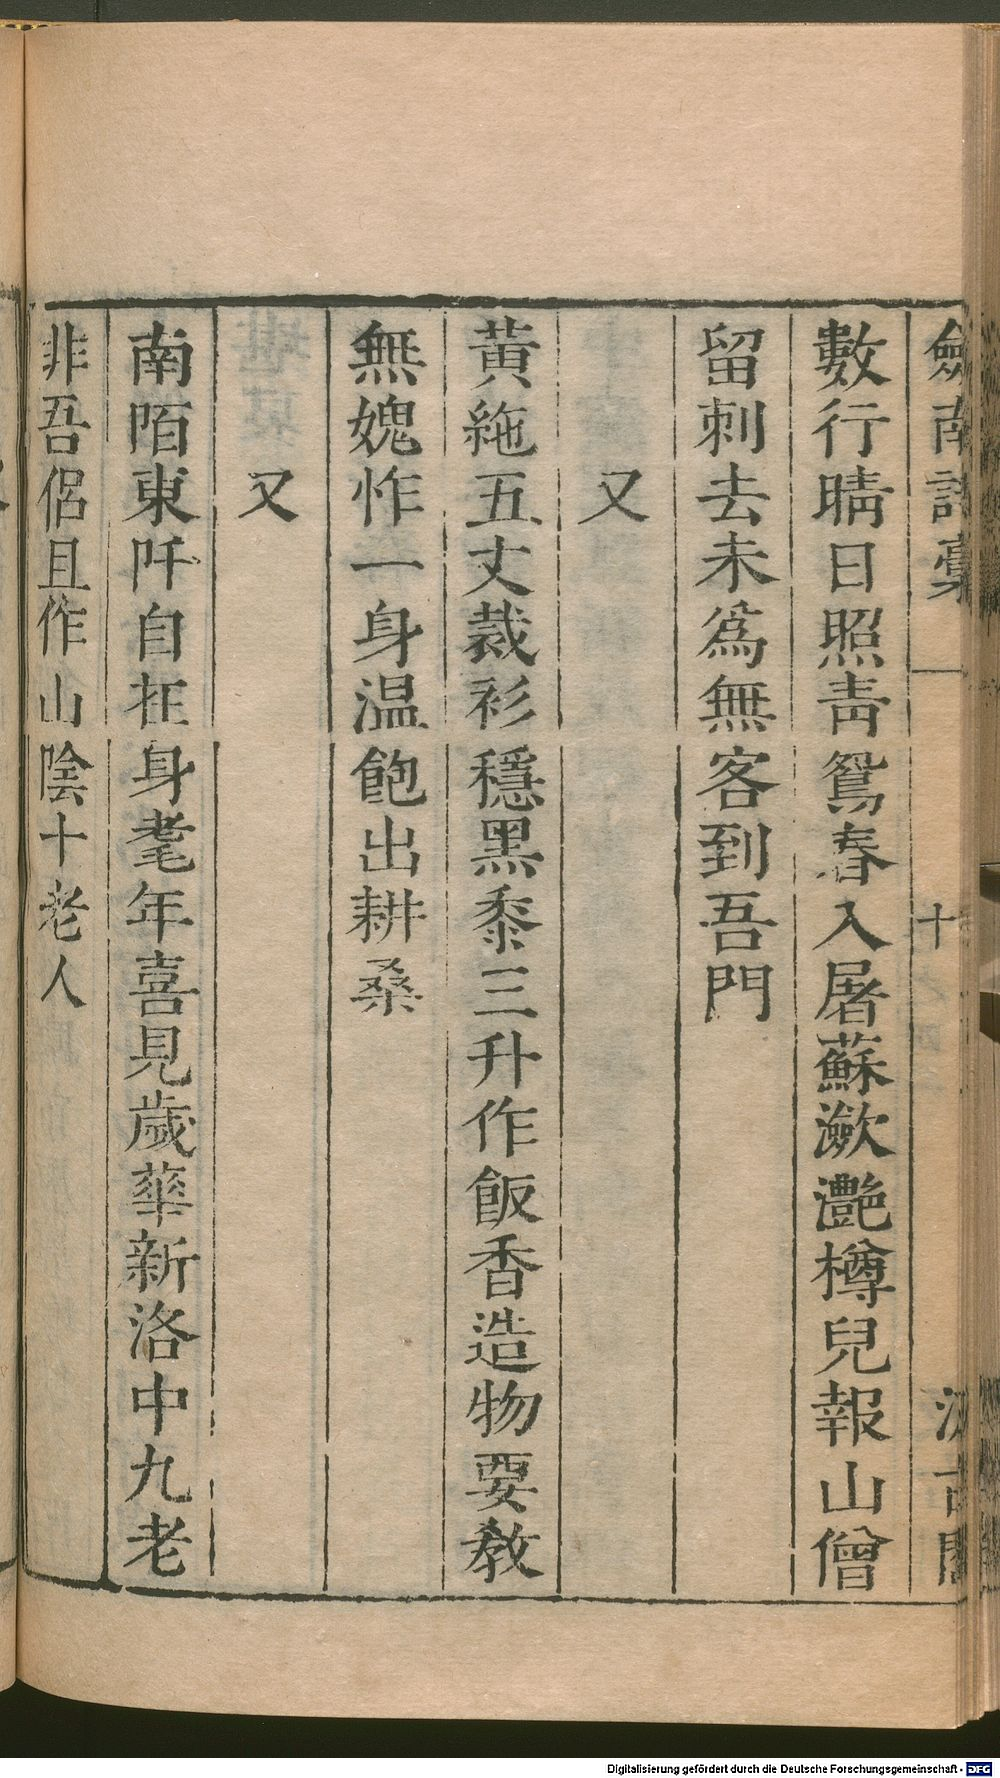 劍南詩稾 十 汲古閣
數行晴日照青鴛春入屠蘇瀲灔樽兒報山僧
留刺去未爲無客到吾門
又
黃絁五丈裁衫穩黑黍三升作飯香造物要教
無媿怍一身温飽出耕桑
又
南陌東阡自在身耄年喜見歲華新洛中九老
非吾侶且作山陰十老人
Digitalisierung gefördert durch die Deutsche Forschungsgemeinschaft - DFG